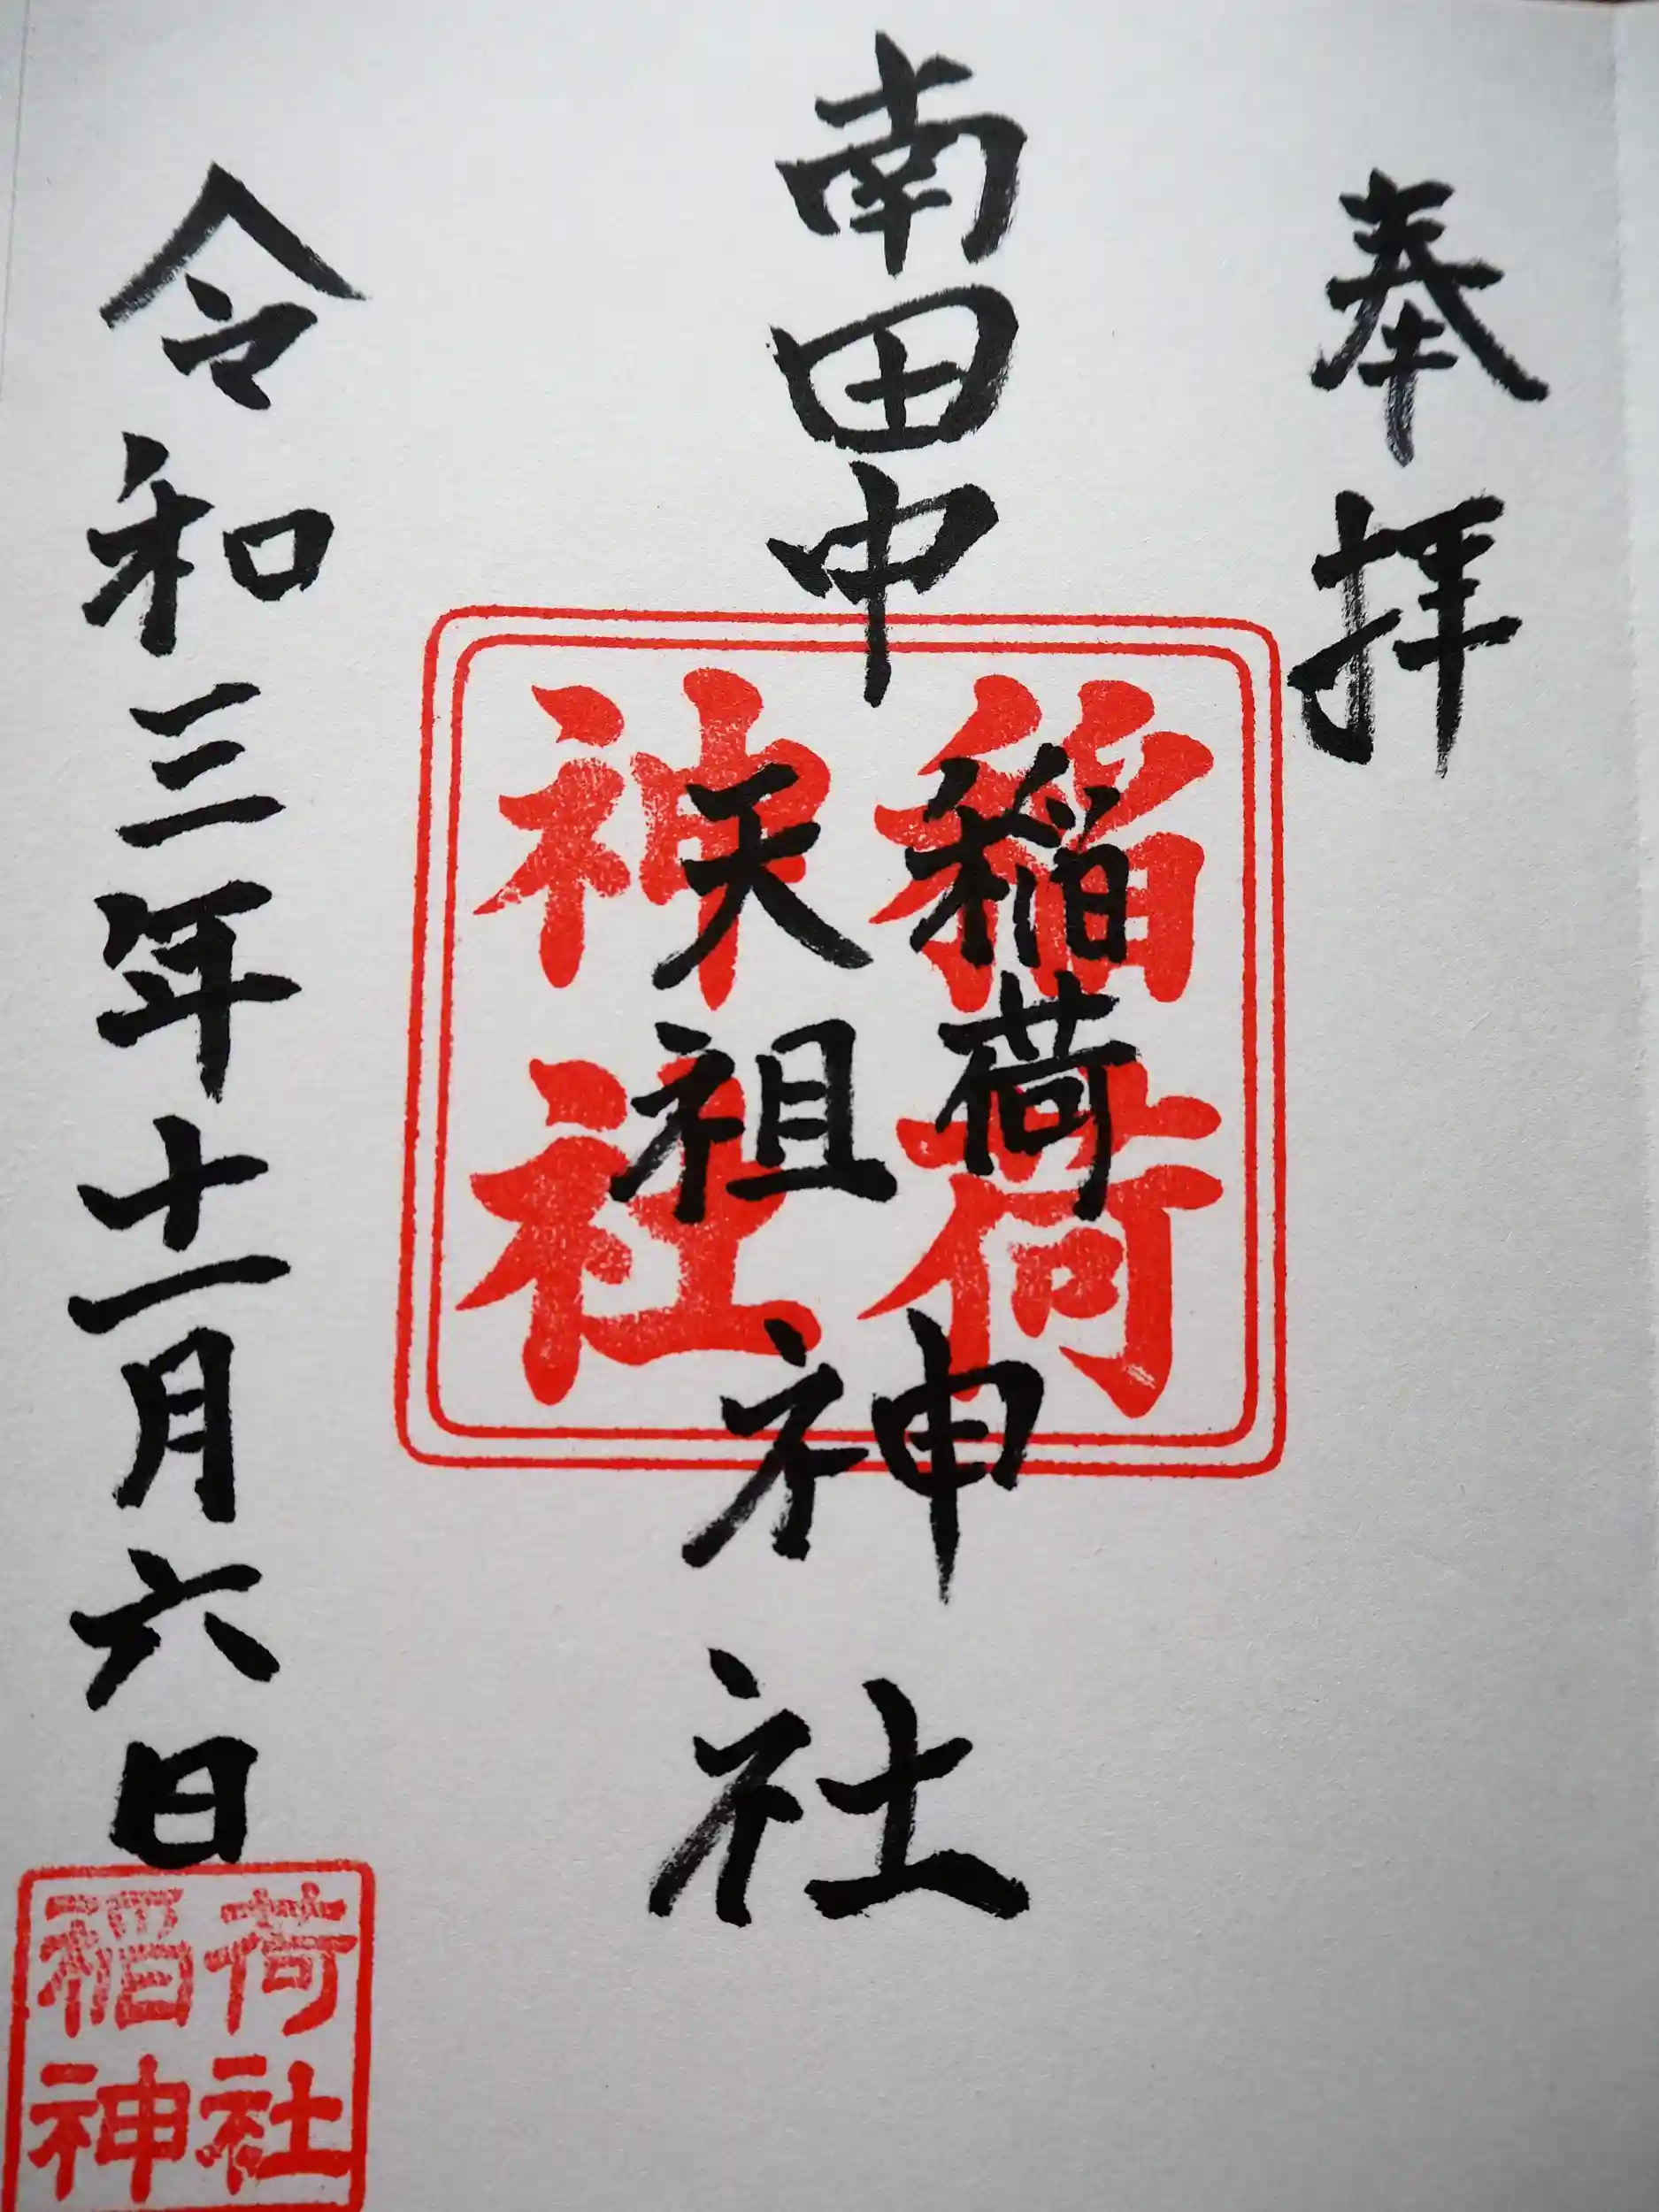 奉拝
南田中
稲荷
天祖
神社
稲荷
神社
令和三年十一月六日
稲荷
神社